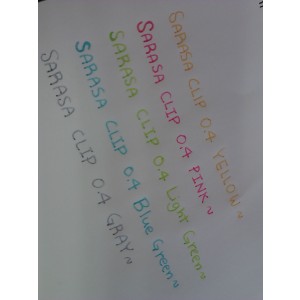 SARASA CLIP 0.4 YELLOW~
SARASA CLIP 0.4 PINK~
SARASA CLIP 0.4 Light Green~
SARASA CLIP 0.4 Blue Green~
SARASA CLIP 0.4 GRAY~